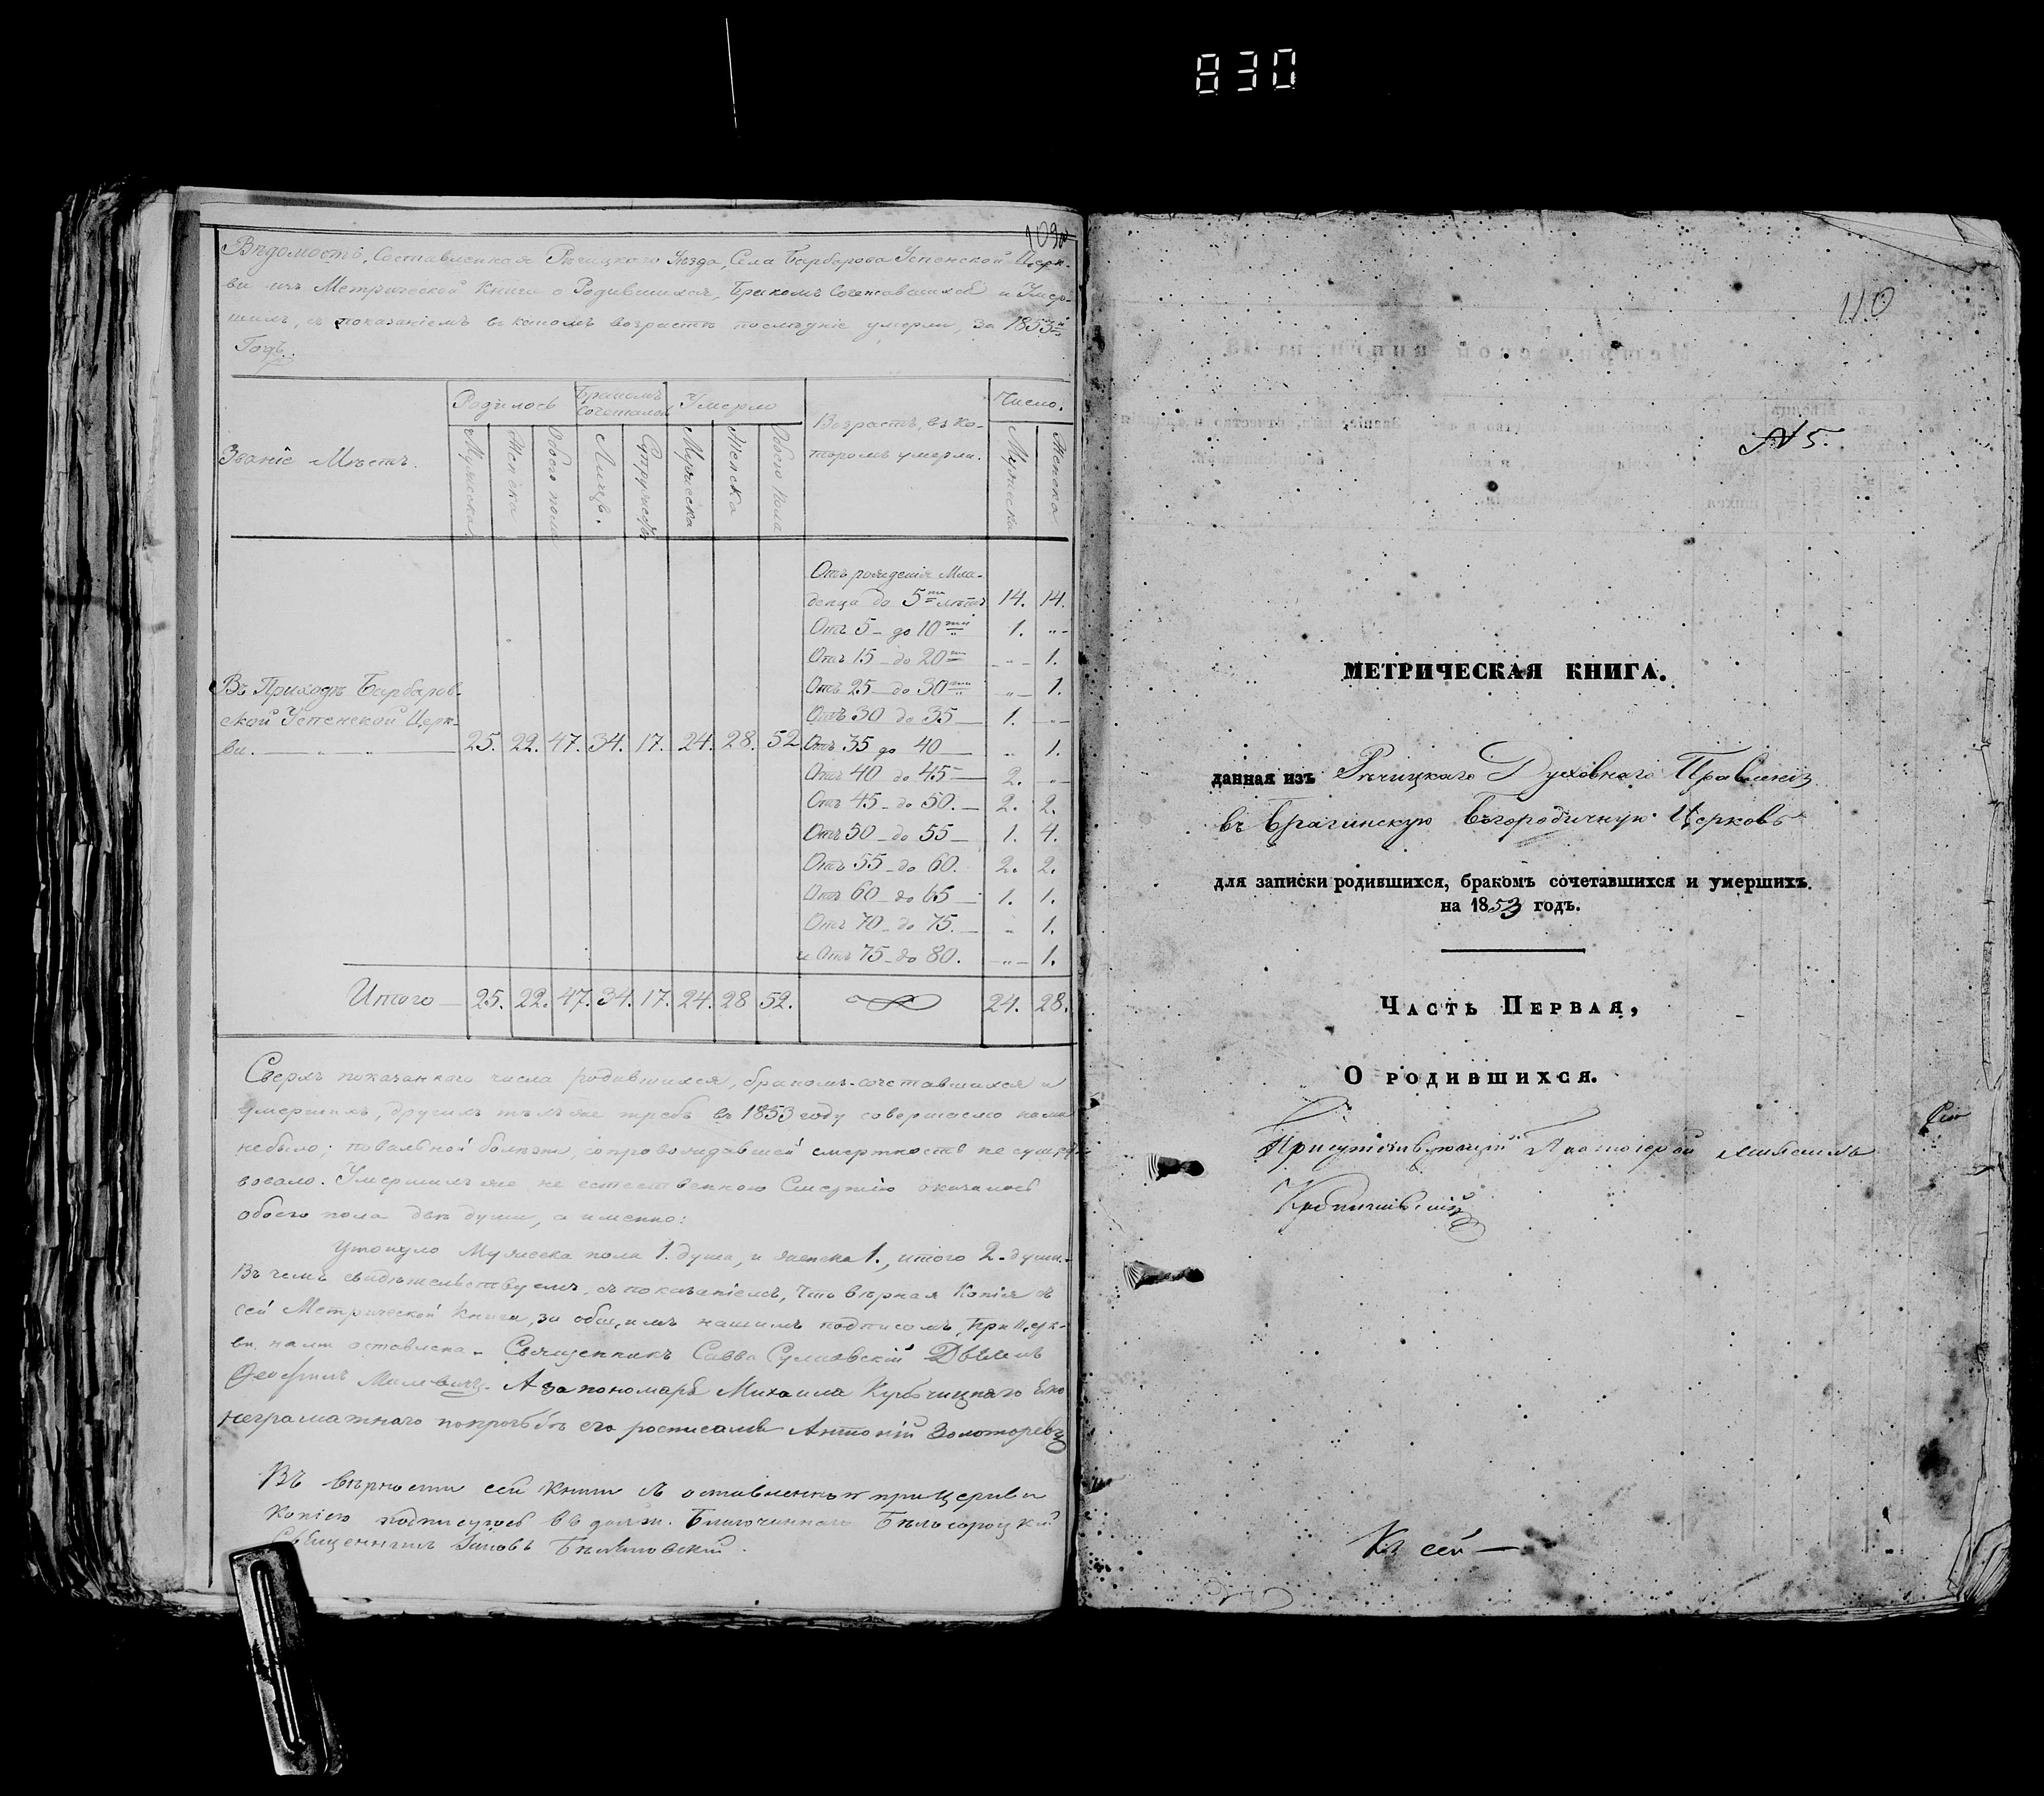 830
Вѣдомость, Составленная Рѣчицкаго Уѣзда, Села Барбарова Успенской Церк-
ви изъ Метрической Книги о Родившихся, Бракомъ Сочетавшихся и Умер-
шихъ, съ показаніемъ въ коемъ возрастѣ послѣдніе умерли, за 1853й
Годъ.
Званіе Мѣстъ.
Родилось
Бракомъ Сочеталось
Умерло
Возрастъ, въ ко-
торомъ умерли.
Число.
Мужеска
Женска
Обоего пола
Лицъ.
Супружествъ
Мужеска
Женска
Обоего пола
Мужеска
Женска
Отъ рожденія Мла-
денца до 5ти лѣтъ 14. 14.
Отъ 5 - до 10ти 1. „ -
Отъ 15 - до 20ти - „ - 1.
Отъ 25 - до 30ти „ - 1.
Отъ 30 до 35 — 1. - „ -
Въ Приходѣ Барбаров-
ской Успенской Церк-
ви. — „ — „ — 25. 22. 47. 34. 17. 24. 28. 52.
Отъ 35 до 40 — „ 1.
Отъ 40 до 45 — 2. „ -
Отъ 45 - до 50. — 2. 2.
Отъ 50 - до 55 — 1. 4.
Отъ 55 - до 60. 2. 2.
Отъ 60 - до 65 — 1. 1.
Отъ 70 - до 75. — „ 1.
и Отъ 75 - до 80. - „ - 1.
Итого — 25. 22. 47. 34. 17. 24. 28 52. 24. 28.
Сверхъ показаннаго числа родившихся, бракомъ-сочетавшихся и
умершихъ, другихъ тѣхъ же требъ въ 1853 году совершаемо нами
небыло; повальной болѣзни, сопровождавшей смертность не сущест-
вовало. Умершихъ же не естественною Смертію оказалось
обоего пола двѣ души, а именно:
Утонуло Мужеска пола 1. душа, и женска 1., итого 2. души.
Въ чемъ свидѣтельствуемъ, съ показаніемъ, что вѣрная Копія съ
сей Метрической Книги, за общимъ нашимъ подписомъ, при Церк-
ви нами оставлена. Священникъ Савва Сулковскій
А за пономаря Михаила
неграматнаго по прозьбѣ его росписался Антоній Золоторевъ
Въ вѣрности сей книги съ оставленною при Церкви
Копіею подписуюсь въ долж. Благочиннаго
Священникъ Іаковъ
110
№ 5.
МЕТРИЧЕСКАЯ КНИГА.
данная изъ Рѣчицкаго Духовнаго Правленія
въ Брагинскую Богородичную Церковь
для записки родившихся, бракомъ сочетавшихся и умершихъ.
на 1853 годъ.
Часть Первая,
О родившихся.
Присутствующій Протоіерей
Къ сей —